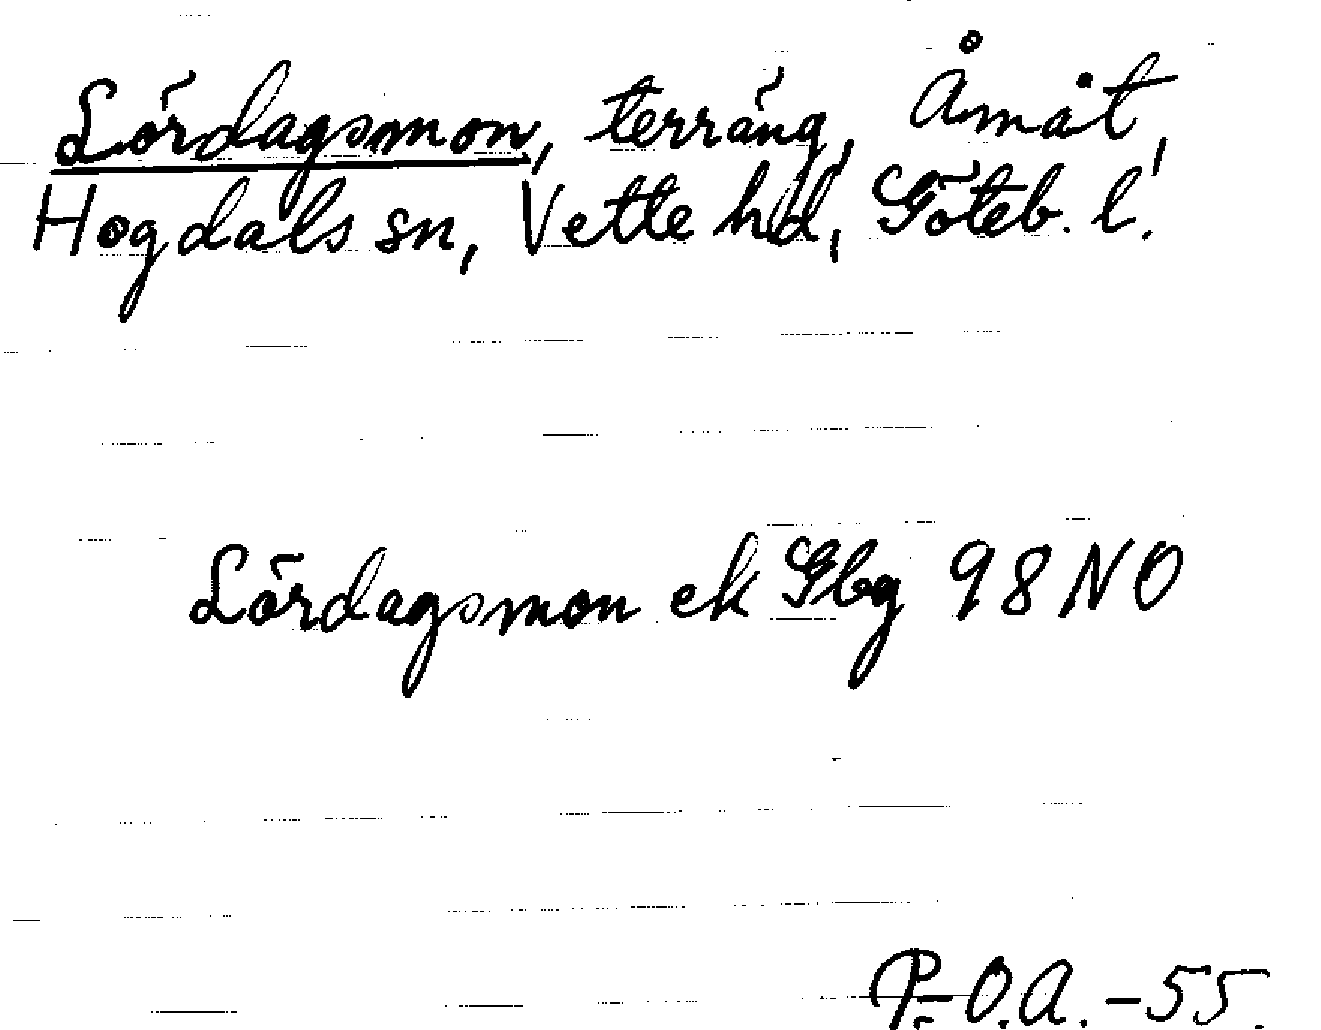 Lördagsmon, terräng, Åmåt,
Hogdals sn, Vette hd, Göteb. l.
Lördagsmon ek Gbg 98 NO
P.-O.A. -55.